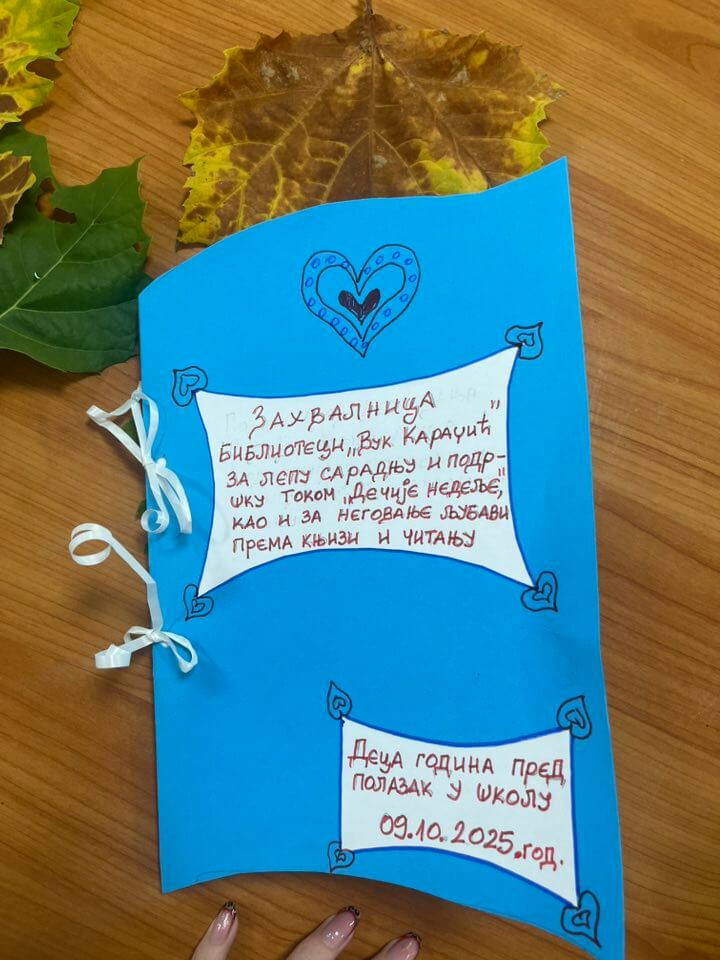 ЗАХВАЛНИЦА
БИБЛИОТЕЦИ „ВУК КАРАЏИЋ"
ЗА ЛЕПУ САРАДЊУ И ПОДР-
ШКУ ТОКОМ „ДЕЧИЈЕ НЕДЕЉЕ",
КАО И ЗА НЕГОВАЊЕ ЉУБАВИ
ПРЕМА КЊИЗИ И ЧИТАЊУ
ДЕЦА ГОДИНА ПРЕД
ПОЛАЗАК У ШКОЛУ
09.10.2025.год.